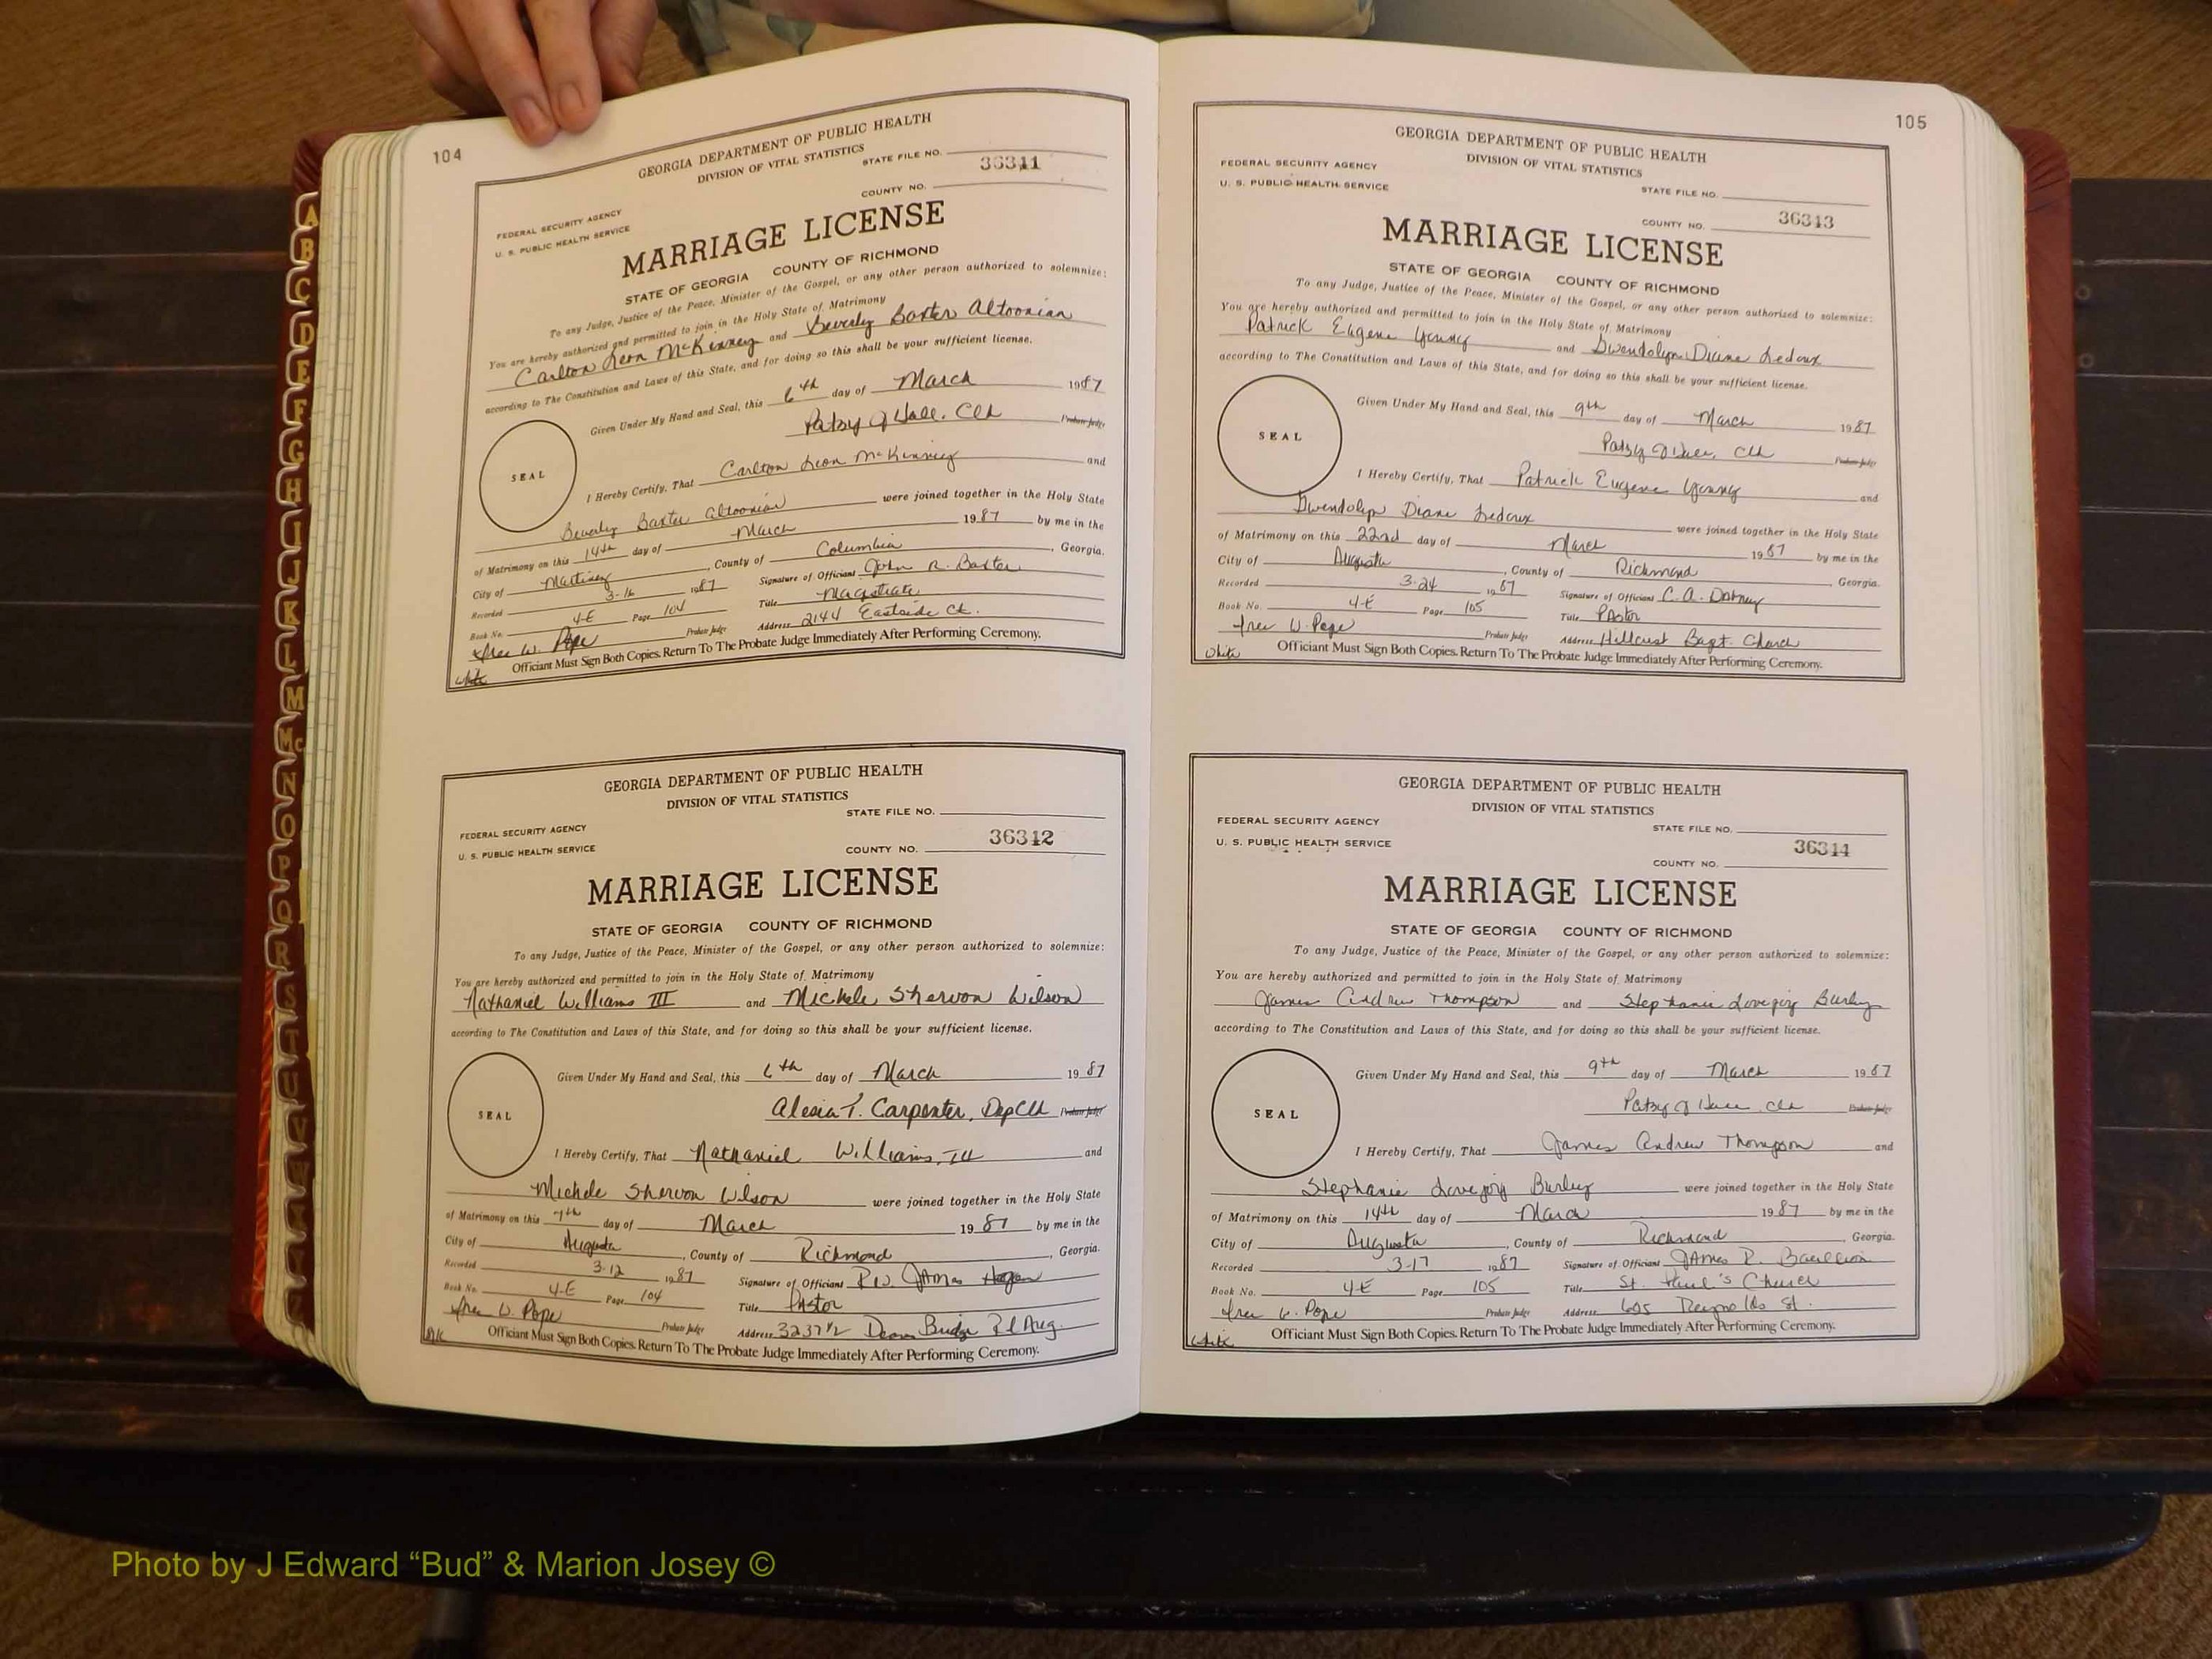 104
GEORGIA DEPARTMENT OF PUBLIC HEALTH
DIVISION OF VITAL STATISTICS
STATE FILE NO.
36311
COUNTY NO.
FEDERAL SECURITY AGENCY
U. S. PUBLIC HEALTH SERVICE
MARRIAGE LICENSE
STATE OF GEORGIA COUNTY OF RICHMOND
To any Judge, Justice of the Peace, Minister of the Gospel, or any other person authorized to solemnize:
You are hereby authorized and permitted to join in the Holy State of Matrimony
Carlton Leon McKinney and Beverly Baxter Altoonian
according to The Constitution and Laws of this State, and for doing so this shall be your sufficient license.
Given Under My Hand and Seal, this 6th day of March 1987
Patsy J Hall, Clk Probate Judge
SEAL
I Hereby Certify, That Carlton Leon McKinney and
Beverly Baxter Altoonian were joined together in the Holy State
of Matrimony on this 14th day of March 1987 by me in the
City of Martinez, County of Columbia, Georgia.
Recorded 3-16 1987 Signature of Officiant John R. Baxter
Book No. 4-E Page 104 Title Magistrate
W. Pope Probate Judge Address 2144 Eastside Ct.
Officiant Must Sign Both Copies. Return To The Probate Judge Immediately After Performing Ceremony.
White
GEORGIA DEPARTMENT OF PUBLIC HEALTH
DIVISION OF VITAL STATISTICS
STATE FILE NO.
FEDERAL SECURITY AGENCY
U. S. PUBLIC HEALTH SERVICE
COUNTY NO. 36312
MARRIAGE LICENSE
STATE OF GEORGIA COUNTY OF RICHMOND
To any Judge, Justice of the Peace, Minister of the Gospel, or any other person authorized to solemnize:
You are hereby authorized and permitted to join in the Holy State of Matrimony
Nathaniel Williams III and Michele Shervon Wilson
according to The Constitution and Laws of this State, and for doing so this shall be your sufficient license.
Given Under My Hand and Seal, this 6th day of March 1987
Alesia T. Carpenter, Dep Clk Probate Judge
SEAL
I Hereby Certify, That Nathaniel Williams, III and
Michele Shervon Wilson were joined together in the Holy State
of Matrimony on this 7th day of March 1987 by me in the
City of Augusta, County of Richmond, Georgia.
Recorded 3-12 1987 Signature of Officiant Rev James Hogan
Book No. 4-E Page 104 Title Pastor
W. Pope Probate Judge Address 3237 1/2 Deans Bridge Rd Aug.
Officiant Must Sign Both Copies. Return To The Probate Judge Immediately After Performing Ceremony.
105
GEORGIA DEPARTMENT OF PUBLIC HEALTH
DIVISION OF VITAL STATISTICS
FEDERAL SECURITY AGENCY
U. S. PUBLIC HEALTH SERVICE
STATE FILE NO.
COUNTY NO. 36313
MARRIAGE LICENSE
STATE OF GEORGIA COUNTY OF RICHMOND
To any Judge, Justice of the Peace, Minister of the Gospel, or any other person authorized to solemnize:
You are hereby authorized and permitted to join in the Holy State of Matrimony
Patrick Eugene Young and Gwendolyn Diane Ledoux
according to The Constitution and Laws of this State, and for doing so this shall be your sufficient license.
Given Under My Hand and Seal, this 9th day of March 1987
Patsy J Hall, Clk Probate Judge
SEAL
I Hereby Certify, That Patrick Eugene Young and
Gwendolyn Diane Ledoux were joined together in the Holy State
of Matrimony on this 22nd day of March 1987 by me in the
City of Augusta, County of Richmond, Georgia.
Recorded 3-24 1987 Signature of Officiant C. A. Dabney
Book No. 4-E Page 105 Title Pastor
W. Pope Probate Judge Address Hillcrest Bapt. Church
Officiant Must Sign Both Copies. Return To The Probate Judge Immediately After Performing Ceremony.
White
GEORGIA DEPARTMENT OF PUBLIC HEALTH
DIVISION OF VITAL STATISTICS
FEDERAL SECURITY AGENCY
U. S. PUBLIC HEALTH SERVICE
STATE FILE NO.
36314
COUNTY NO.
MARRIAGE LICENSE
STATE OF GEORGIA COUNTY OF RICHMOND
To any Judge, Justice of the Peace, Minister of the Gospel, or any other person authorized to solemnize:
You are hereby authorized and permitted to join in the Holy State of Matrimony
James Andrew Thompson and Stephanie Lovejoy Burley
according to The Constitution and Laws of this State, and for doing so this shall be your sufficient license.
Given Under My Hand and Seal, this 9th day of March 1987
Patsy J Hall, Clk Probate Judge
SEAL
I Hereby Certify, That James Andrew Thompson and
Stephanie Lovejoy Burley were joined together in the Holy State
of Matrimony on this 14th day of March 1987 by me in the
City of Augusta, County of Richmond, Georgia.
Recorded 3-17 1987 Signature of Officiant James R.
Book No. 4-E Page 105 Title St. Paul's Church
W. Pope Probate Judge Address 605 Reynolds St.
Officiant Must Sign Both Copies. Return To The Probate Judge Immediately After Performing Ceremony.
White
A
B
C
D
E
F
G
H
I
J
K
L
M
Mc
N
O
P
Q
R
S
T
U
V
W
Photo by J Edward “Bud” & Marion Josey ©